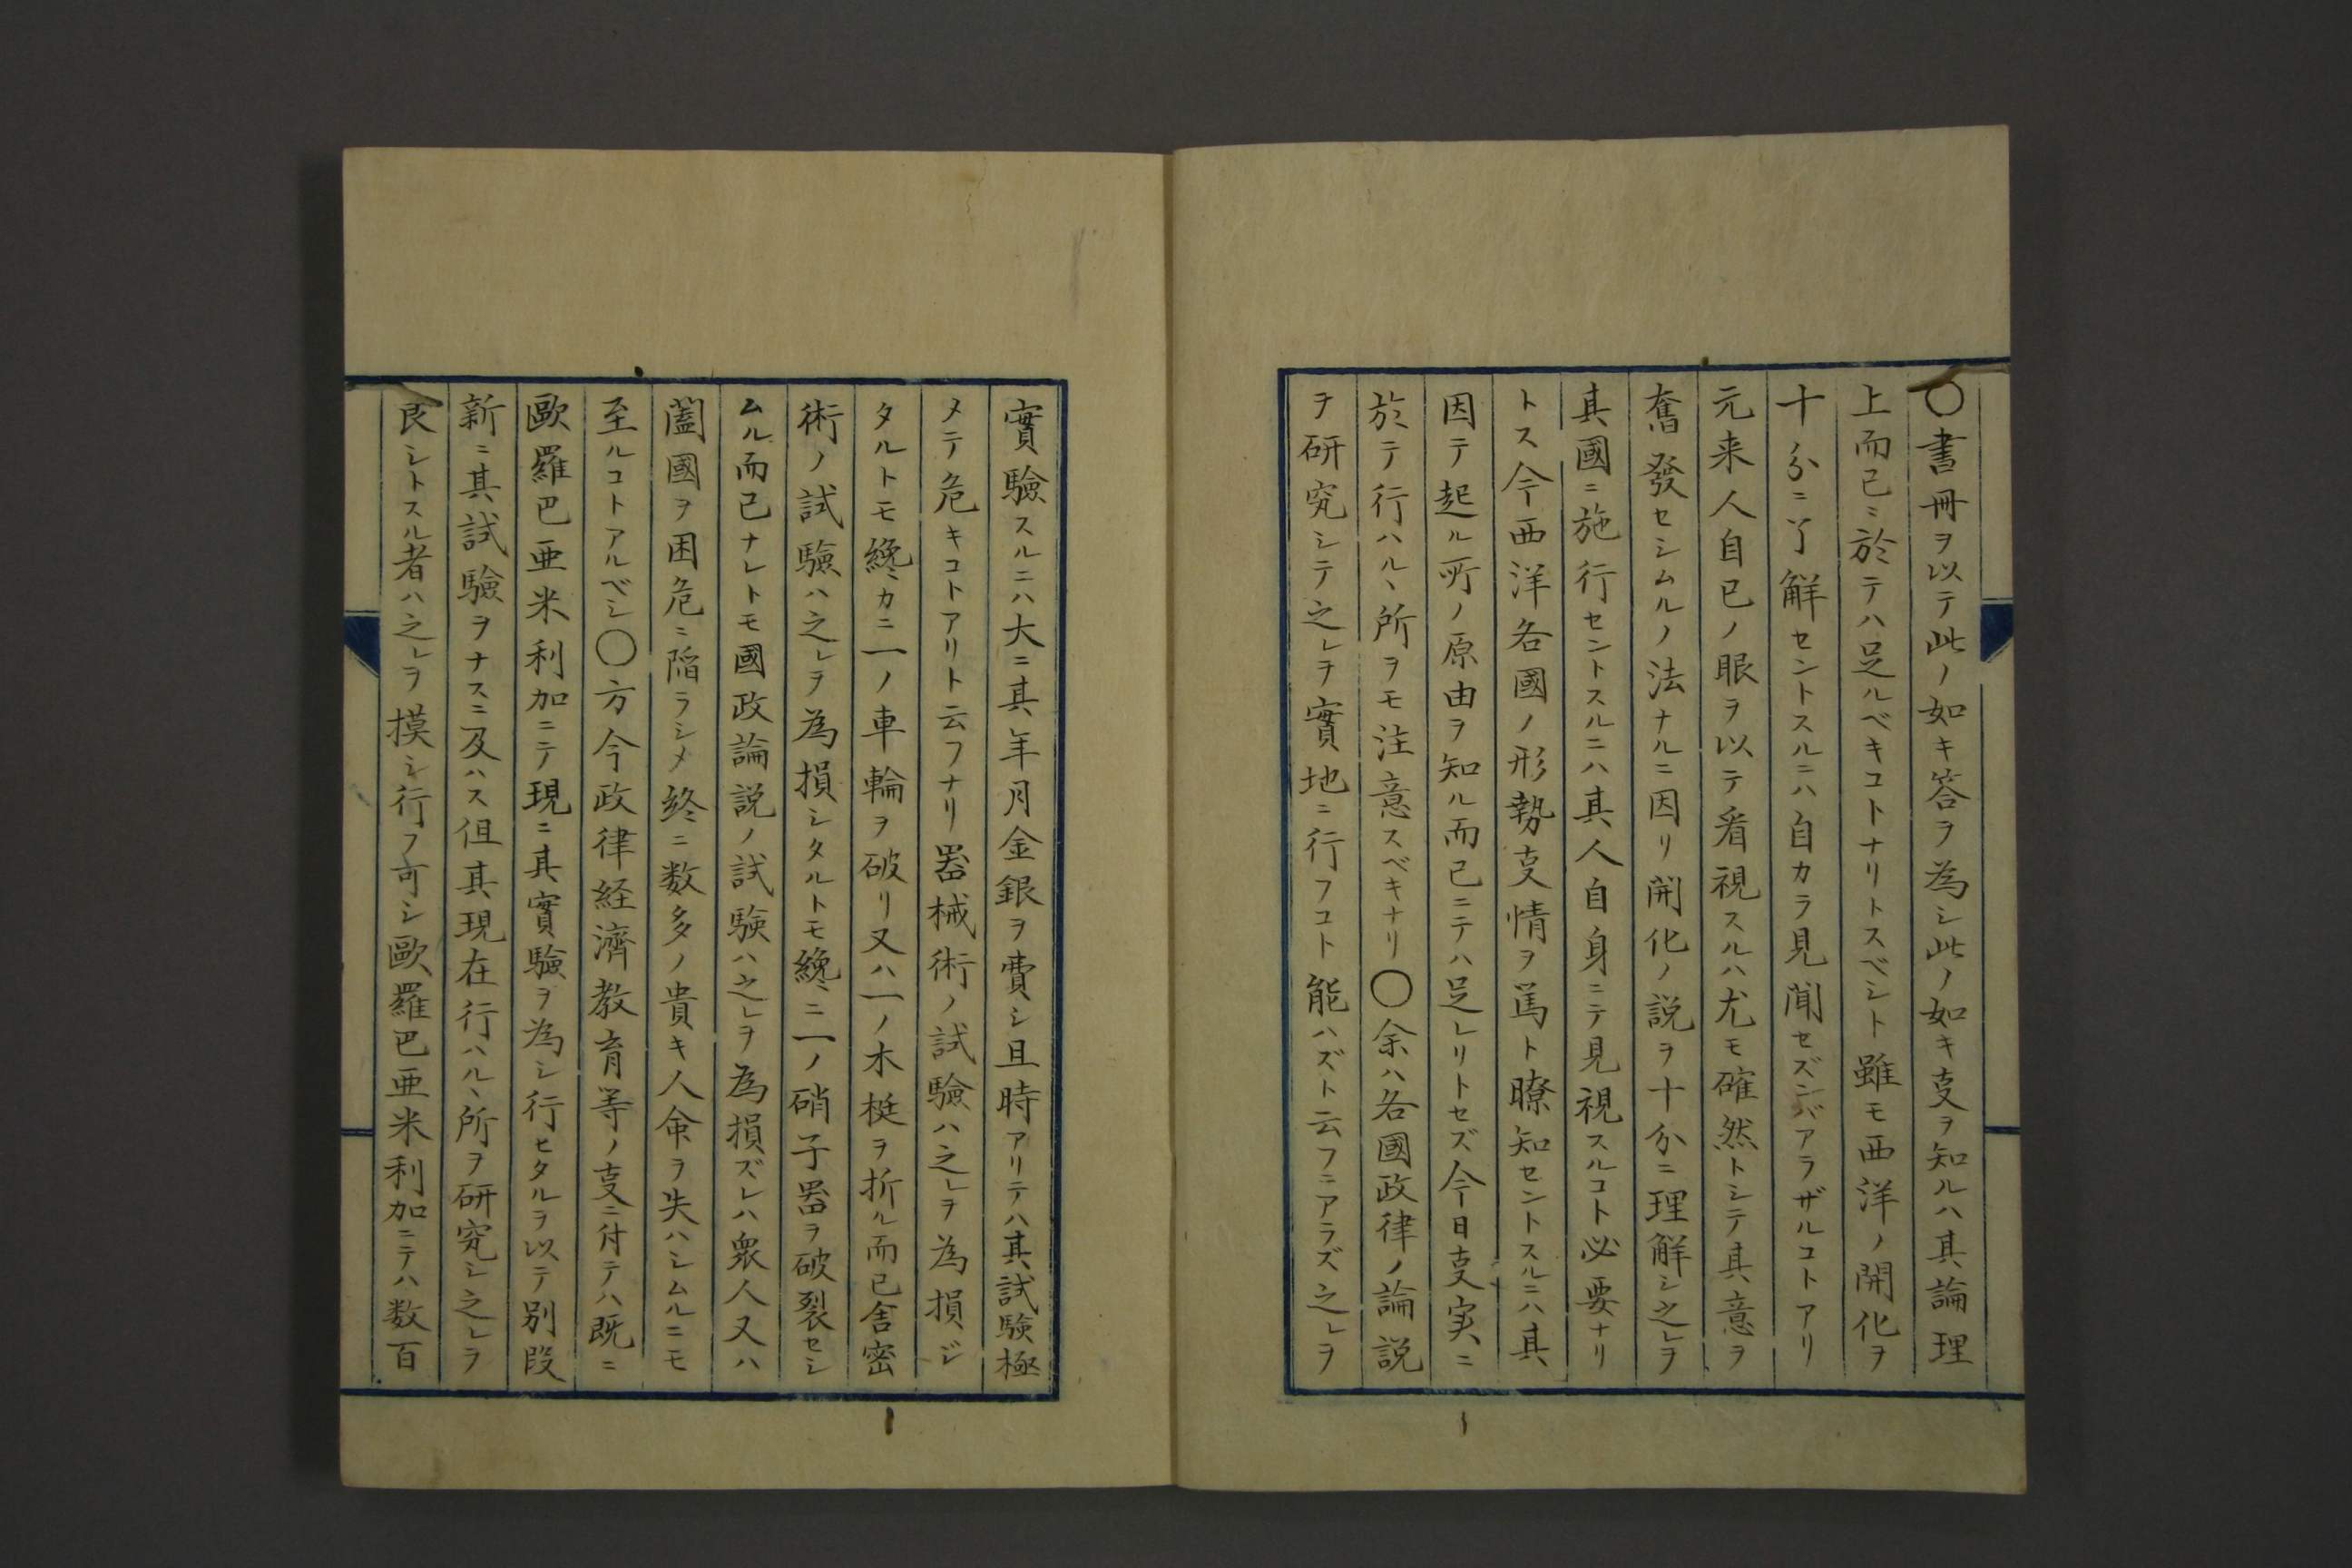 〇書冊ヲ以テ此ノ如キ答ヲ為シ此ノ如キ叓ヲ知ルハ其論理
上而已ニ於テハ足ルベキコトナリトスベシト雖モ西洋ノ開化ヲ
十分ニ了解セントスルニハ自カラ見聞セズンバアラザルコトアリ
元来人自已ノ眼ヲ以テ看視スルハ尤モ確然トシテ其意ヲ
奮發セシムルノ法ナルニ因リ開化ノ説ヲ十分ニ理解シ之レヲ
其國ニ施行セントスルニハ其人自身ニテ見視スルコト必要ナリ
トス今西洋各國ノ形勢叓情ヲ篤ト瞭知セントスルニハ其
因テ起ル所ノ原由ヲ知ル而已ニテハ足レリトセズ今日叓実ニ
於テ行ハルヽ所ヲモ注意スベキナリ〇余ハ各國政律ノ論説
ヲ研究シテ之レヲ實地ニ行フコト能ハズト云フニアラズ之レヲ
實驗スルニハ大ニ其年月金銀ヲ費シ且時アリテハ其試験極
メテ危キコトアリト云フナリ器械術ノ試驗ハ之レヲ為損ジ
タルトモ纔カニ一ノ車輪ヲ破リ又ハ一ノ木梃ヲ折ル而已舎密
術ノ試驗ハ之レヲ為損シタルトモ纔ニ一ノ硝子器ヲ破裂セシ
ムル而已ナレトモ國政論説ノ試験ハ之レヲ為損ズレハ衆人又ハ
闔國ヲ困危ニ陥ラシメ終ニ数多ノ貴キ人命ヲ失ハシムルニモ
至ルコトアルベシ〇方今政律経濟教育等ノ叓ニ付テハ既ニ
歐羅巴亜米利加ニテ現ニ其實驗ヲ為シ行セタルヲ以テ別段
新ニ其試驗ヲナスニ及ハス但其現在行ハルヽ所ヲ研究シ之レヲ
良シトスル者ハ之レヲ摸シ行フ可シ歐羅巴亜米利加ニテハ数百